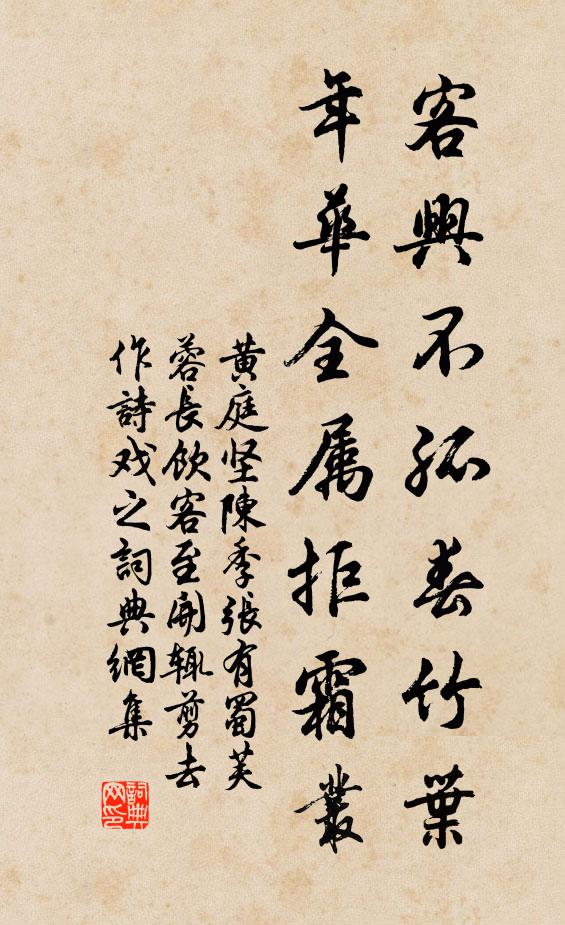 客興不孤春竹葉
年華全属拒霜叢
黄庭坚陳季張有蜀芙
蓉長飲客至開輒剪去
作詩戏之詞典網集
詞典
网印